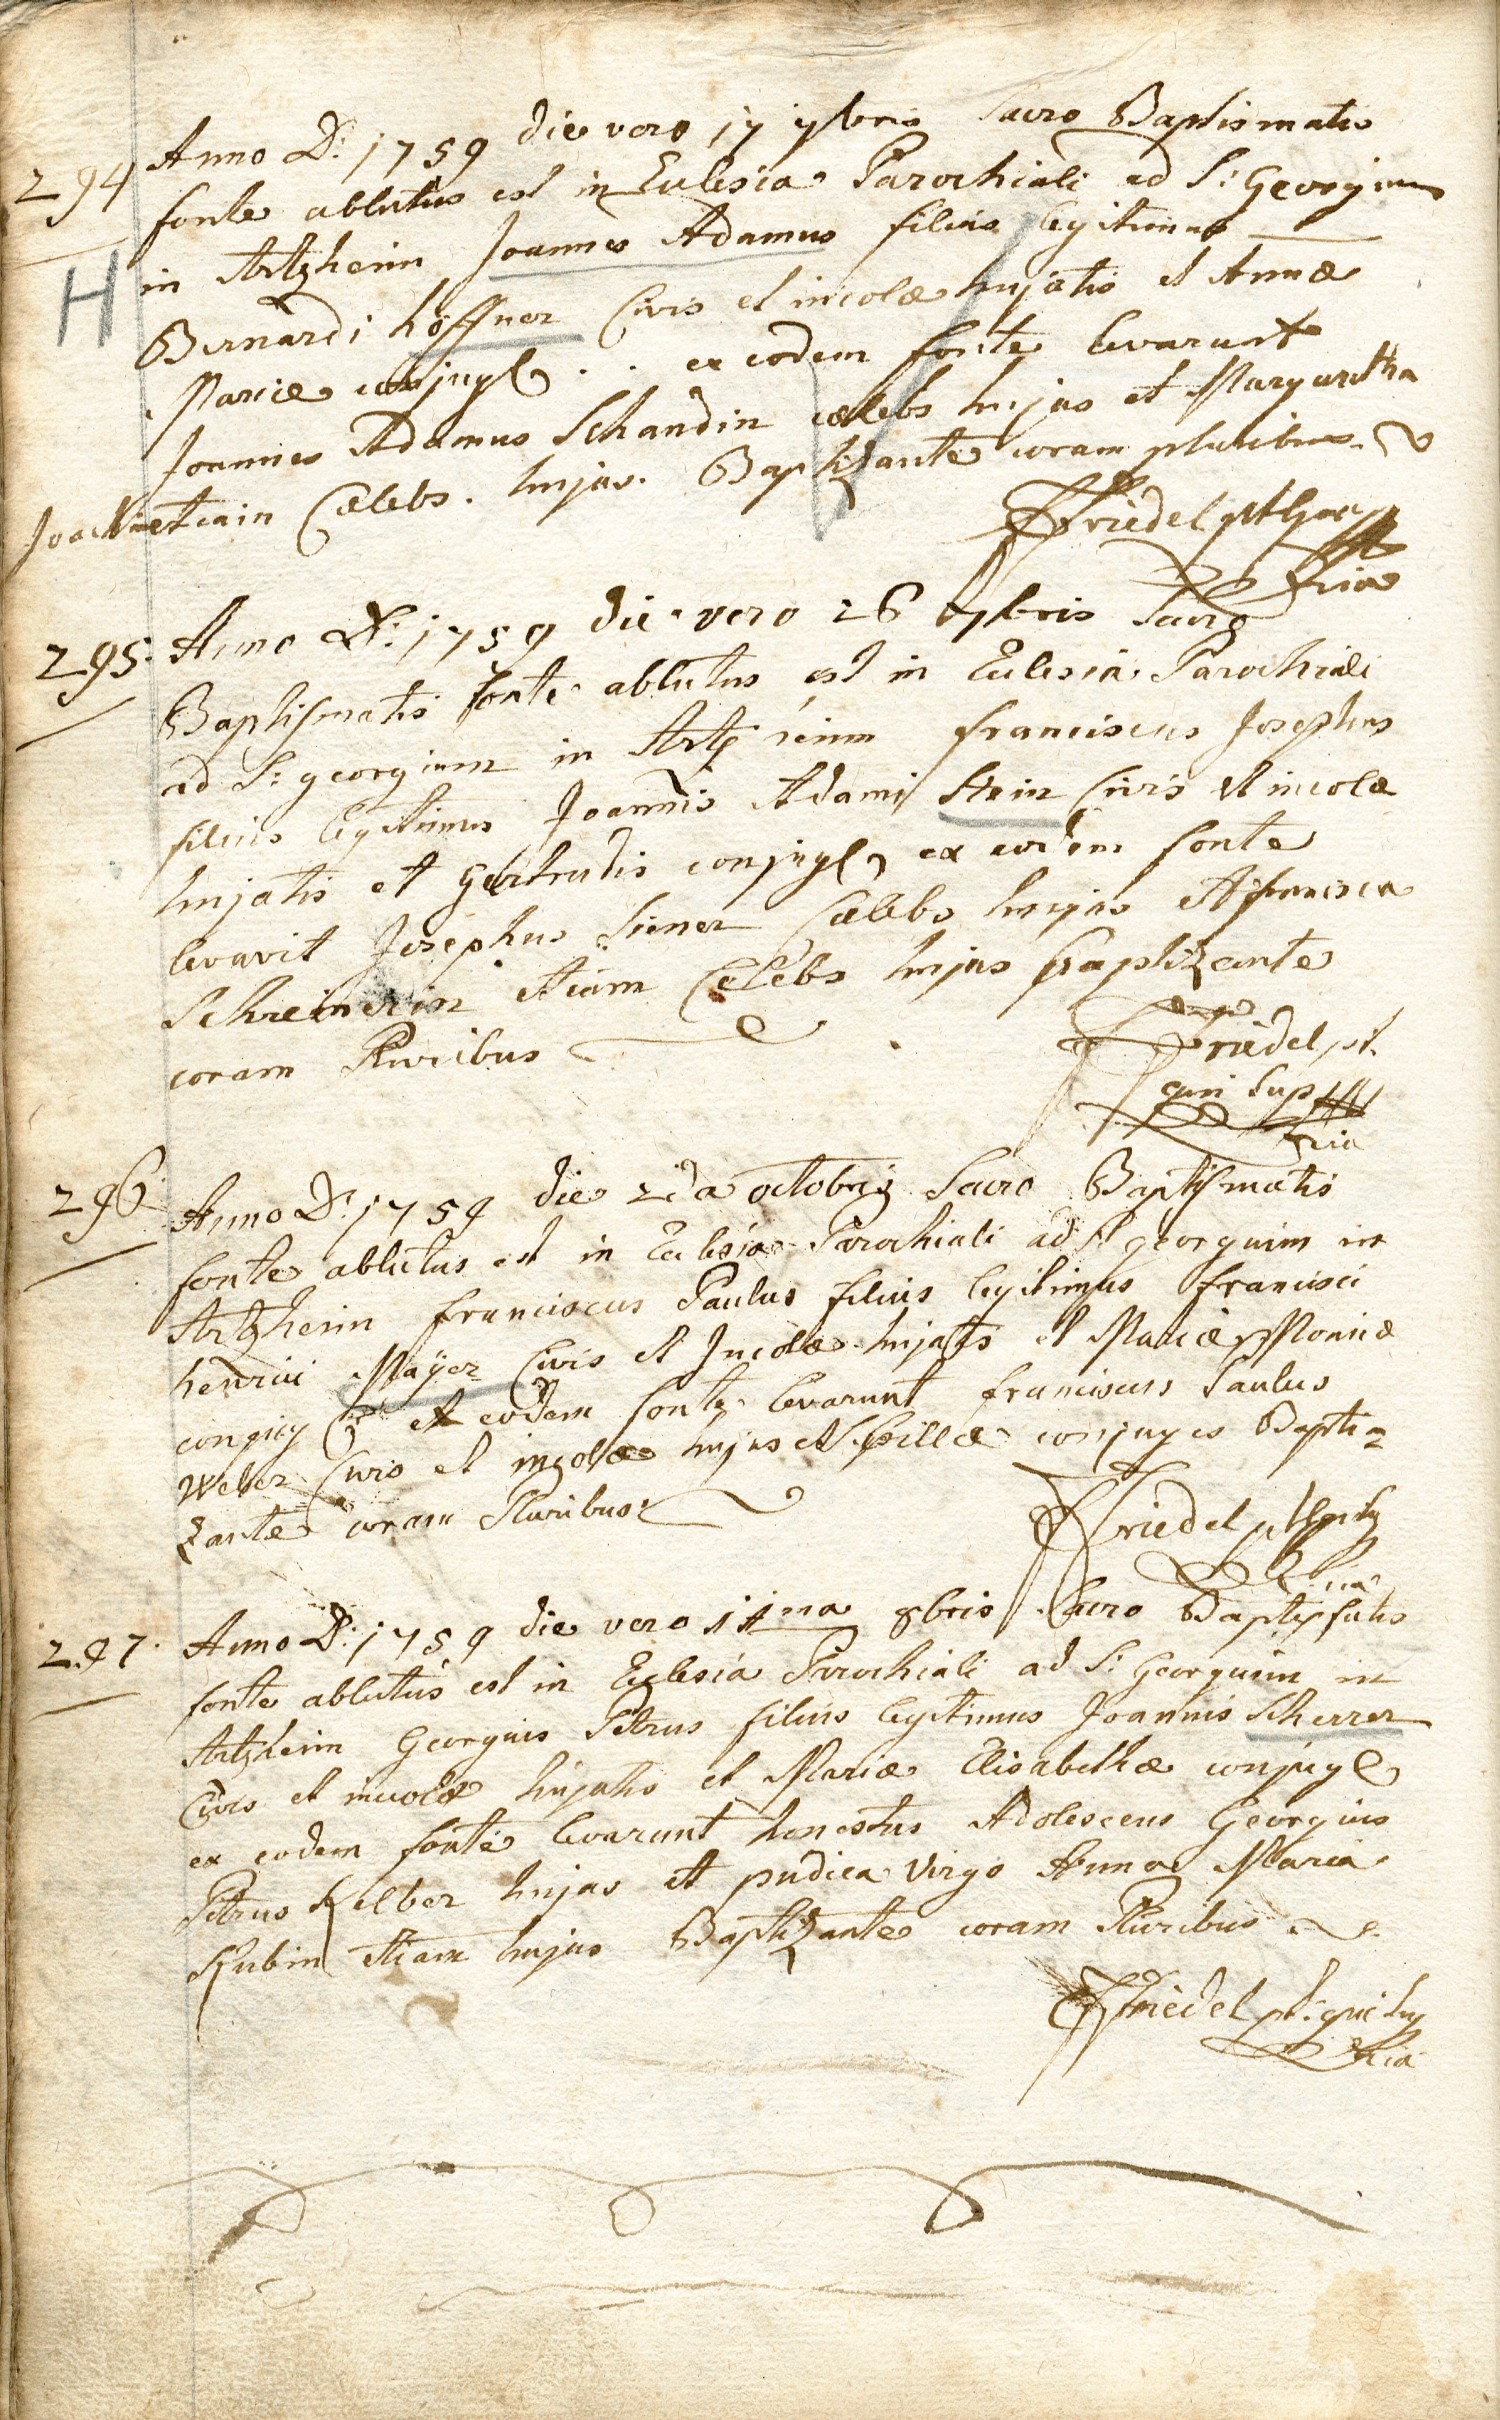 294 Anno D: 1759 die vero 17 7bris Sacro Baptismatis
fonte ablutus est in Eclesia Parochiali ad S: Georgium
H in Artzheim Joannes Adamus filius legitimus
Bernardi höffner Civis et incolæ hujatis et Annæ
Mariæ conjug . . ex eodem fonte levarunt
Joannes Adamus Schandin cælebs hujas et Margaretha
Joachimet Cælebs. hujas. Baptizante coram pluribus.
Friedel
mpria
295. Anno D: 1759 die vero 26 7bris Sacro
Baptismatis fonte ablutus est in Eclesia Parochiali
ad S: georgium in Artzheim franciscus Josephus
filius legitimus Joannis Adami Stein Civis et incolæ
hujatis et Gertrudis conjug ex eodem fonte
levavit Josephus Siener Cælebs hujas et francisca
Schreinerin etiam Celebs hujas Baptizante
coram Pluribus
Friedel pt.
qui sup
mpria
296 Anno D: 1759 die 2da octobris Sacro Baptismatis
fonte ablutus est in Eclesia Parochiali ad St georgium in
Artzheim franciscus Paulus filius legitimus francisci
henrici Mayer Civis et Incolæ hujatis et Mariæ Monicæ
conjug ex eodem fonte levarunt franciscus Paulus
Weber Civis et incolæ hujas et conjuges Bapti-
zante coram Pluribus
Friedel
mpria
297. Anno D: 1759 die vero 11ma 8bris Sacro
fonte ablutus est in Eclesia Parochiali ad S: Georgium in
Artzheim Georgius Petrus filius legitimus Joannis Scherrer
Civis et incolæ hujatis et Mariæ Elisabethæ conjug
ex eodem fonte levarunt honestus Adolescens Georgius
Petrus Kelber hujas et pudica Virgo Anna Maria
Rubin etiam hujas Baptizante coram Pluribus
Friedel pt: qui sup
mpria